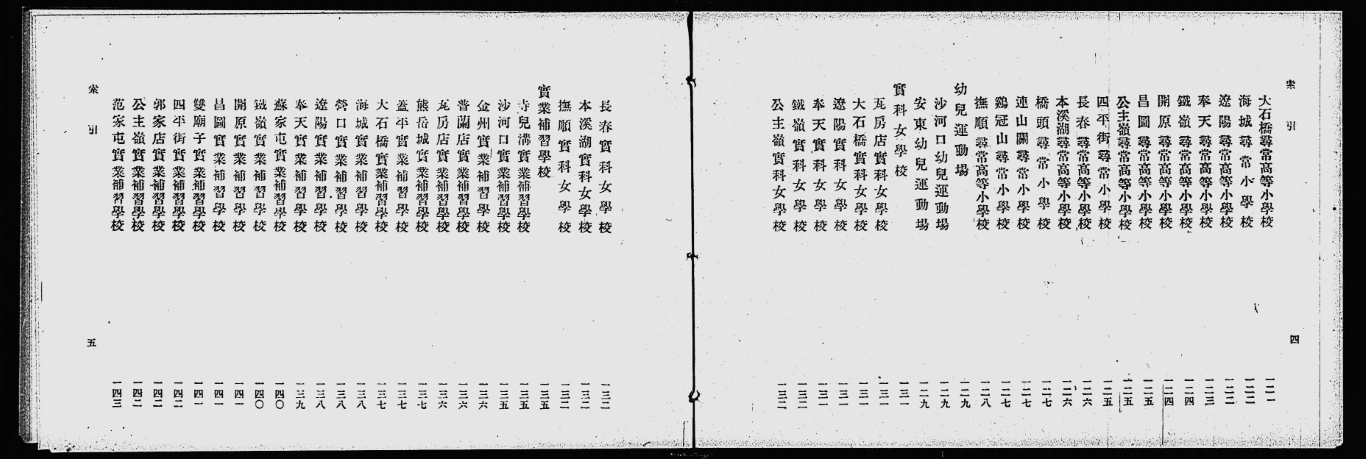 索引
四
大石橋尋常高等小學校 一二一
海城尋常小學校 一二二
遼陽尋常高等小學校 一二二
奉天尋常高等小學校 一二三
鐵嶺尋常高等小學校 一二四
開原尋常高等小學校 一二四
昌圖尋常高等小學校 一二五
公主嶺尋常高等小學校 一二五
四平街尋常小學校 一二五
長春尋常高等小學校 一二六
本溪湖尋常高等小學校 一二六
橋頭尋常小學校 一二七
連山關尋常小學校 一二七
鷄冠山尋常小學校 一二七
撫順尋常高等小學校 一二八
幼兒運動場 一二九
沙河口幼兒運動場 一二九
安東幼兒運動場 一二九
實科女學校 一三一
瓦房店實科女學校 一三一
大石橋實科女學校 一三一
遼陽實科女學校 一三一
奉天實科女學校 一三一
鐵嶺實科女學校 一三二
公主嶺實科女學校 一三二
長春實科女學校 一三二
本溪湖實科女學校 一三二
撫順實科女學校 一三二
實業補習學校 一三五
寺兒溝實業補習學校 一三五
沙河口實業補習學校 一三五
金州實業補習學校 一三六
普蘭店實業補習學校 一三六
瓦房店實業補習學校 一三六
熊岳城實業補習學校 一三七
蓋平實業補習學校 一三七
大石橋實業補習學校 一三七
海城實業補習學校 一三八
營口實業補習學校 一三八
遼陽實業補習學校 一三八
奉天實業補習學校 一三九
蘇家屯實業補習學校 一四〇
鐵嶺實業補習學校 一四〇
開原實業補習學校 一四一
昌圖實業補習學校 一四一
雙廟子實業補習學校 一四一
四平街實業補習學校 一四二
郭家店實業補習學校 一四二
公主嶺實業補習學校 一四二
范家屯實業補習學校 一四三
索引
五